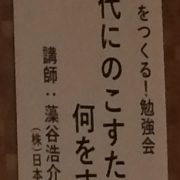 をつくる！勉強会
代にのこすた
何を
講師：藻谷浩介
(株)日本